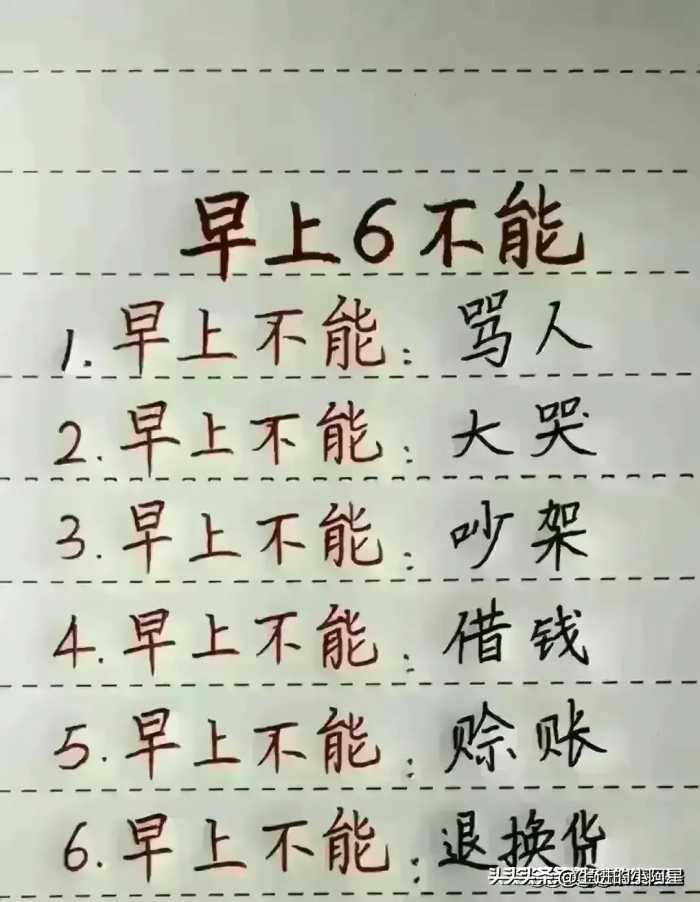 早上6不能
1.早上不能：骂人
2.早上不能：大哭
3.早上不能：吵架
4.早上不能：借钱
5.早上不能：赊账
6.早上不能：退换货